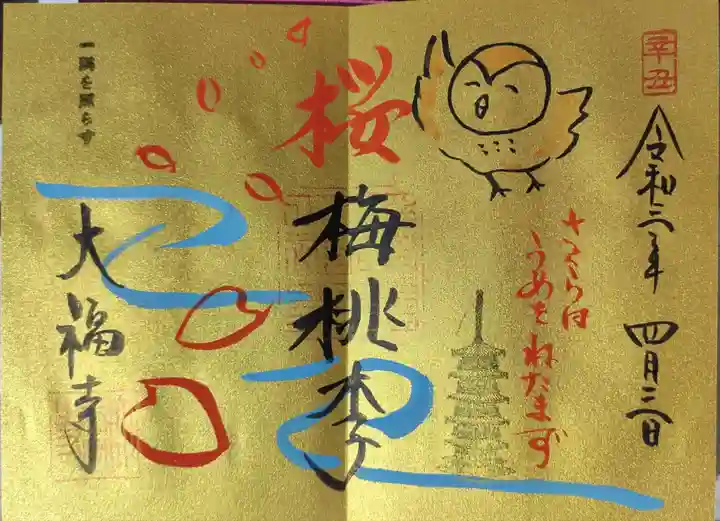 辛丑
令和三年 四月三日
さくらは
うめをねたまず
桜梅桃李
一隅を照らす
大福寺